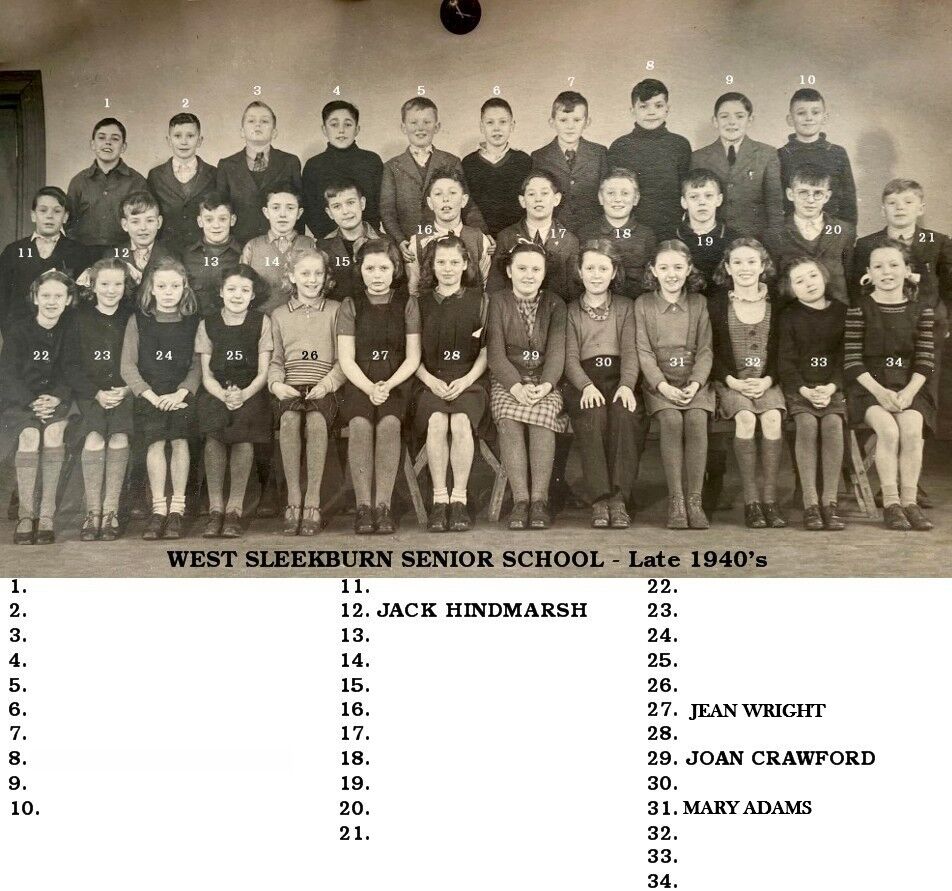 1 2 3 4 5 6 7 8 9 10
11 12 13 14 15 16 17 18 19 20 21
22 23 24 25 26 27 28 29 30 31 32 33 34
WEST SLEEKBURN SENIOR SCHOOL - Late 1940's
1.
2.
3.
4.
5.
6.
7.
8.
9.
10.
11.
12. JACK HINDMARSH
13.
14.
15.
16.
17.
18.
19.
20.
21.
22.
23.
24.
25.
26.
27. JEAN WRIGHT
28.
29. JOAN CRAWFORD
30.
31. MARY ADAMS
32.
33.
34.